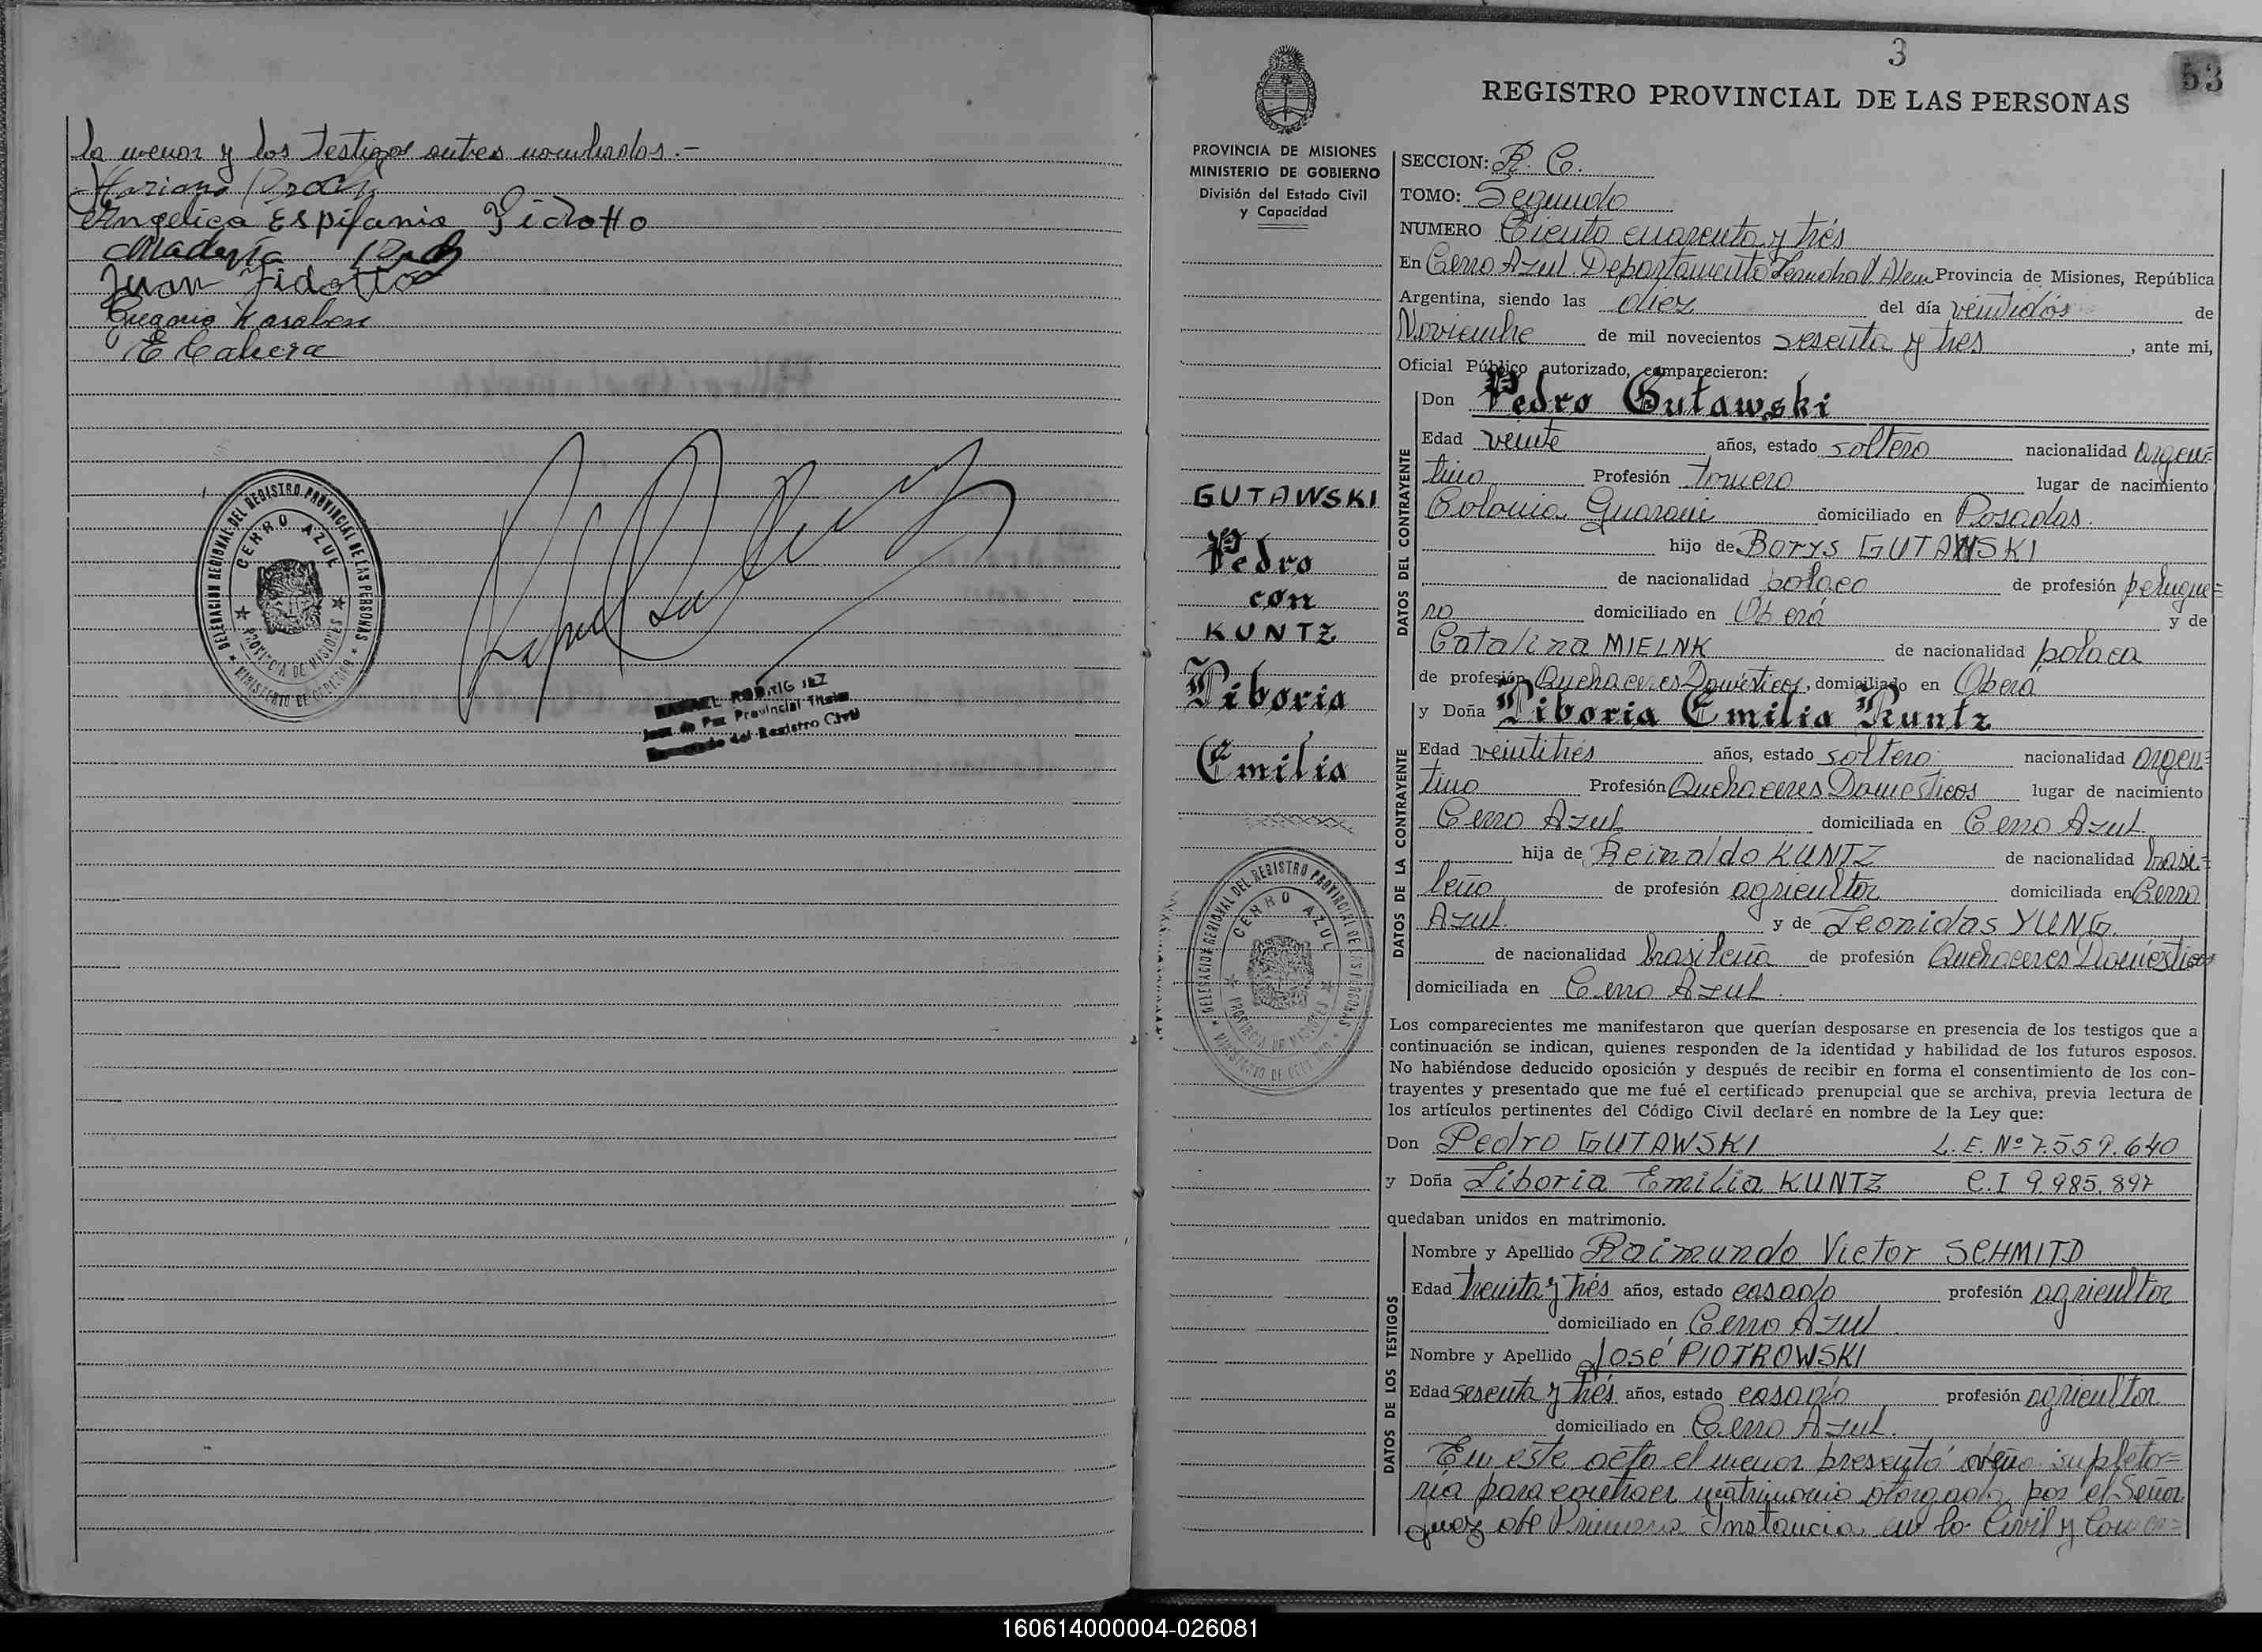 la menor y los testigos antes nombrados.-
Angelica Espifania Fidotto
Juan Fidotto
E Cabera
DELEGACION REGIONAL DEL REGISTRO PROVINCIAL DE LAS PERSONAS
CERRO AZUL
PROVINCIA DE MISIONES
MINISTERIO DE GOBIERNO
RAFAEL RODRIGUEZ
Juez de Paz Provincial Titular
Encargado del Registro Civil
3
53
REGISTRO PROVINCIAL DE LAS PERSONAS
PROVINCIA DE MISIONES
MINISTERIO DE GOBIERNO
División del Estado Civil
y Capacidad
GUTAWSKI
Pedro
con
KUNTZ
Liboria
Emilia
DELEGACION REGIONAL DEL REGISTRO PROVINCIAL DE LAS PERSONAS
CERRO AZUL
PROVINCIA DE MISIONES
MINISTERIO DE GOBIERNO
SECCION: R. C.
TOMO: Segundo
NUMERO Ciento cuarenta y trés
En Cerro Azul. Departamento Leandro N. Alem Provincia de Misiones, República
Argentina, siendo las diez del día veintidós de
Noviembre de mil novecientos sesenta y tres, ante mi,
Oficial Público autorizado, comparecieron:
DATOS DEL CONTRAYENTE
Don Pedro Gutawski
Edad veinte años, estado soltero nacionalidad argen=
tino Profesión tornero lugar de nacimiento
Colonia Guarani domiciliado en Posadas.
hijo de Borys GUTAWSKI
de nacionalidad polaco de profesión peluque=
ro domiciliado en Oberá y de
Catalina MIELNK de nacionalidad polaca
de profesión Quehaceres Domésticos, domiciliado en Oberá
DATOS DE LA CONTRAYENTE
y Doña Liboria Emilia Kuntz
Edad veintitrés años, estado soltera nacionalidad argen=
tina Profesión Quehaceres Domesticos lugar de nacimiento
Cerro Azul domiciliada en Cerro Azul
hija de Reinaldo KUNTZ de nacionalidad brasi=
leño de profesión agricultor domiciliada en Cerro
Azul. y de Leonidas YUNG.
de nacionalidad brasileña de profesión Quehaceres Domésticos
domiciliada en Cerro Azul.
Los comparecientes me manifestaron que querían desposarse en presencia de los testigos que a
continuación se indican, quienes responden de la identidad y habilidad de los futuros esposos.
No habiéndose deducido oposición y después de recibir en forma el consentimiento de los con-
trayentes y presentado que me fué el certificado prenupcial que se archiva, previa lectura de
los artículos pertinentes del Código Civil declaré en nombre de la Ley que:
Don Pedro GUTAWSKI L.E. Nº 7.559.640
y Doña Liboria Emilia KUNTZ C.I 9.985.897
quedaban unidos en matrimonio.
DATOS DE LOS TESTIGOS
Nombre y Apellido Raimundo Victor SCHMITD
Edad treinta y trés años, estado casado profesión agricultor
domiciliado en Cerro Azul.
Nombre y Apellido José PIOTROWSKI
Edad sesenta y trés años, estado casado profesión agricultor
domiciliado en Cerro Azul.
En este acto el menor presentó venia supleto=
ria para contraer matrimonio otorgada por el Señor
Juez de Primera Instancia en lo Civil y Comer=
160614000004-026081